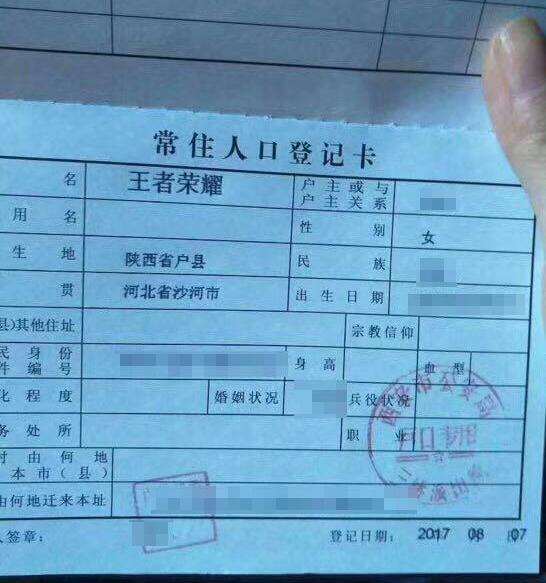 常住人口登记卡
名 王者荣耀 户主或与户主关系
用名 性别 女
生地 陕西省户县 民族
贯 河北省沙河市 出生日期
县)其他住址 宗教信仰
民身份件编号 身高 血型
化程度 婚姻状况 兵役状况
务处所 职业
时由何地本市(县)
由何地迁来本址
人签章: 登记日期: 2017 08 07
西安市公安局
户口专用